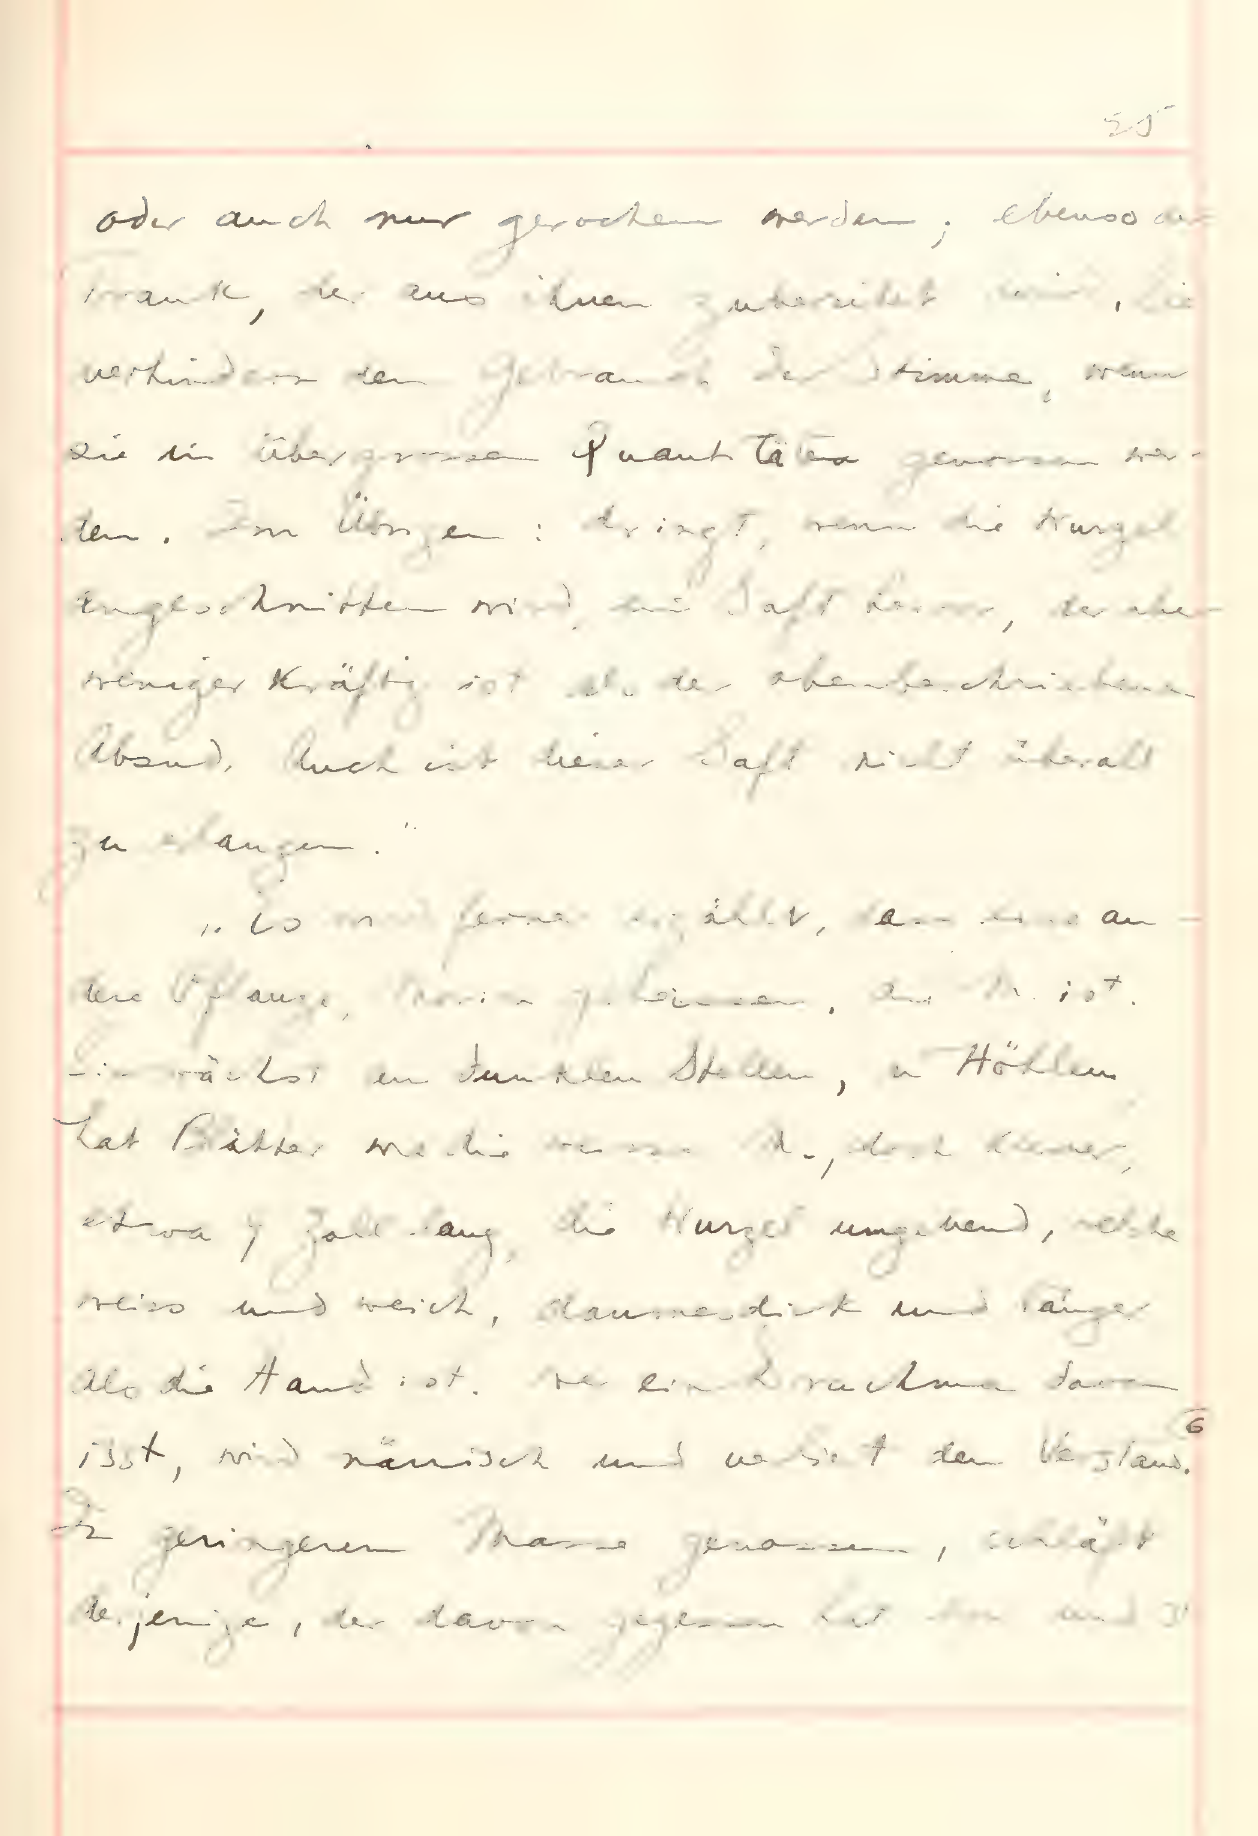 25
oder auch nur gerochen werden; ebenso der
Trank, der aus ihnen zubereitet wird. Sie
verhindern den Gebrauch der Stimme, wenn
sie in übergrossen Quantitäten genossen wer-
den. Im Übrigen: dringt, wenn die Wurzel
angeschnitten wird, ein Saft hervor, der aber
weniger kräftig ist als der obenbeschriebene
Absud. Auch ist dieser Saft nicht überall
zu erlangen."
„Es wird ferner erzählt, dass eine an-
dere Pflanze, Morion geheissen, die M. ist.
Sie wächst an dunklen Stellen, in Höhlen
hat Blätter wie die weisse M., doch kleiner,
etwa 4 Zoll lang, die Wurzel umgebend, welche
weiss und weich, daumesdick und länger
als die Hand ist. Wer ein Drachma davon
isst, wird närrisch und verliert den Verstand.6
In geringerem Masse genossen, schläft
derjenige, der davon gegessen hat ein und